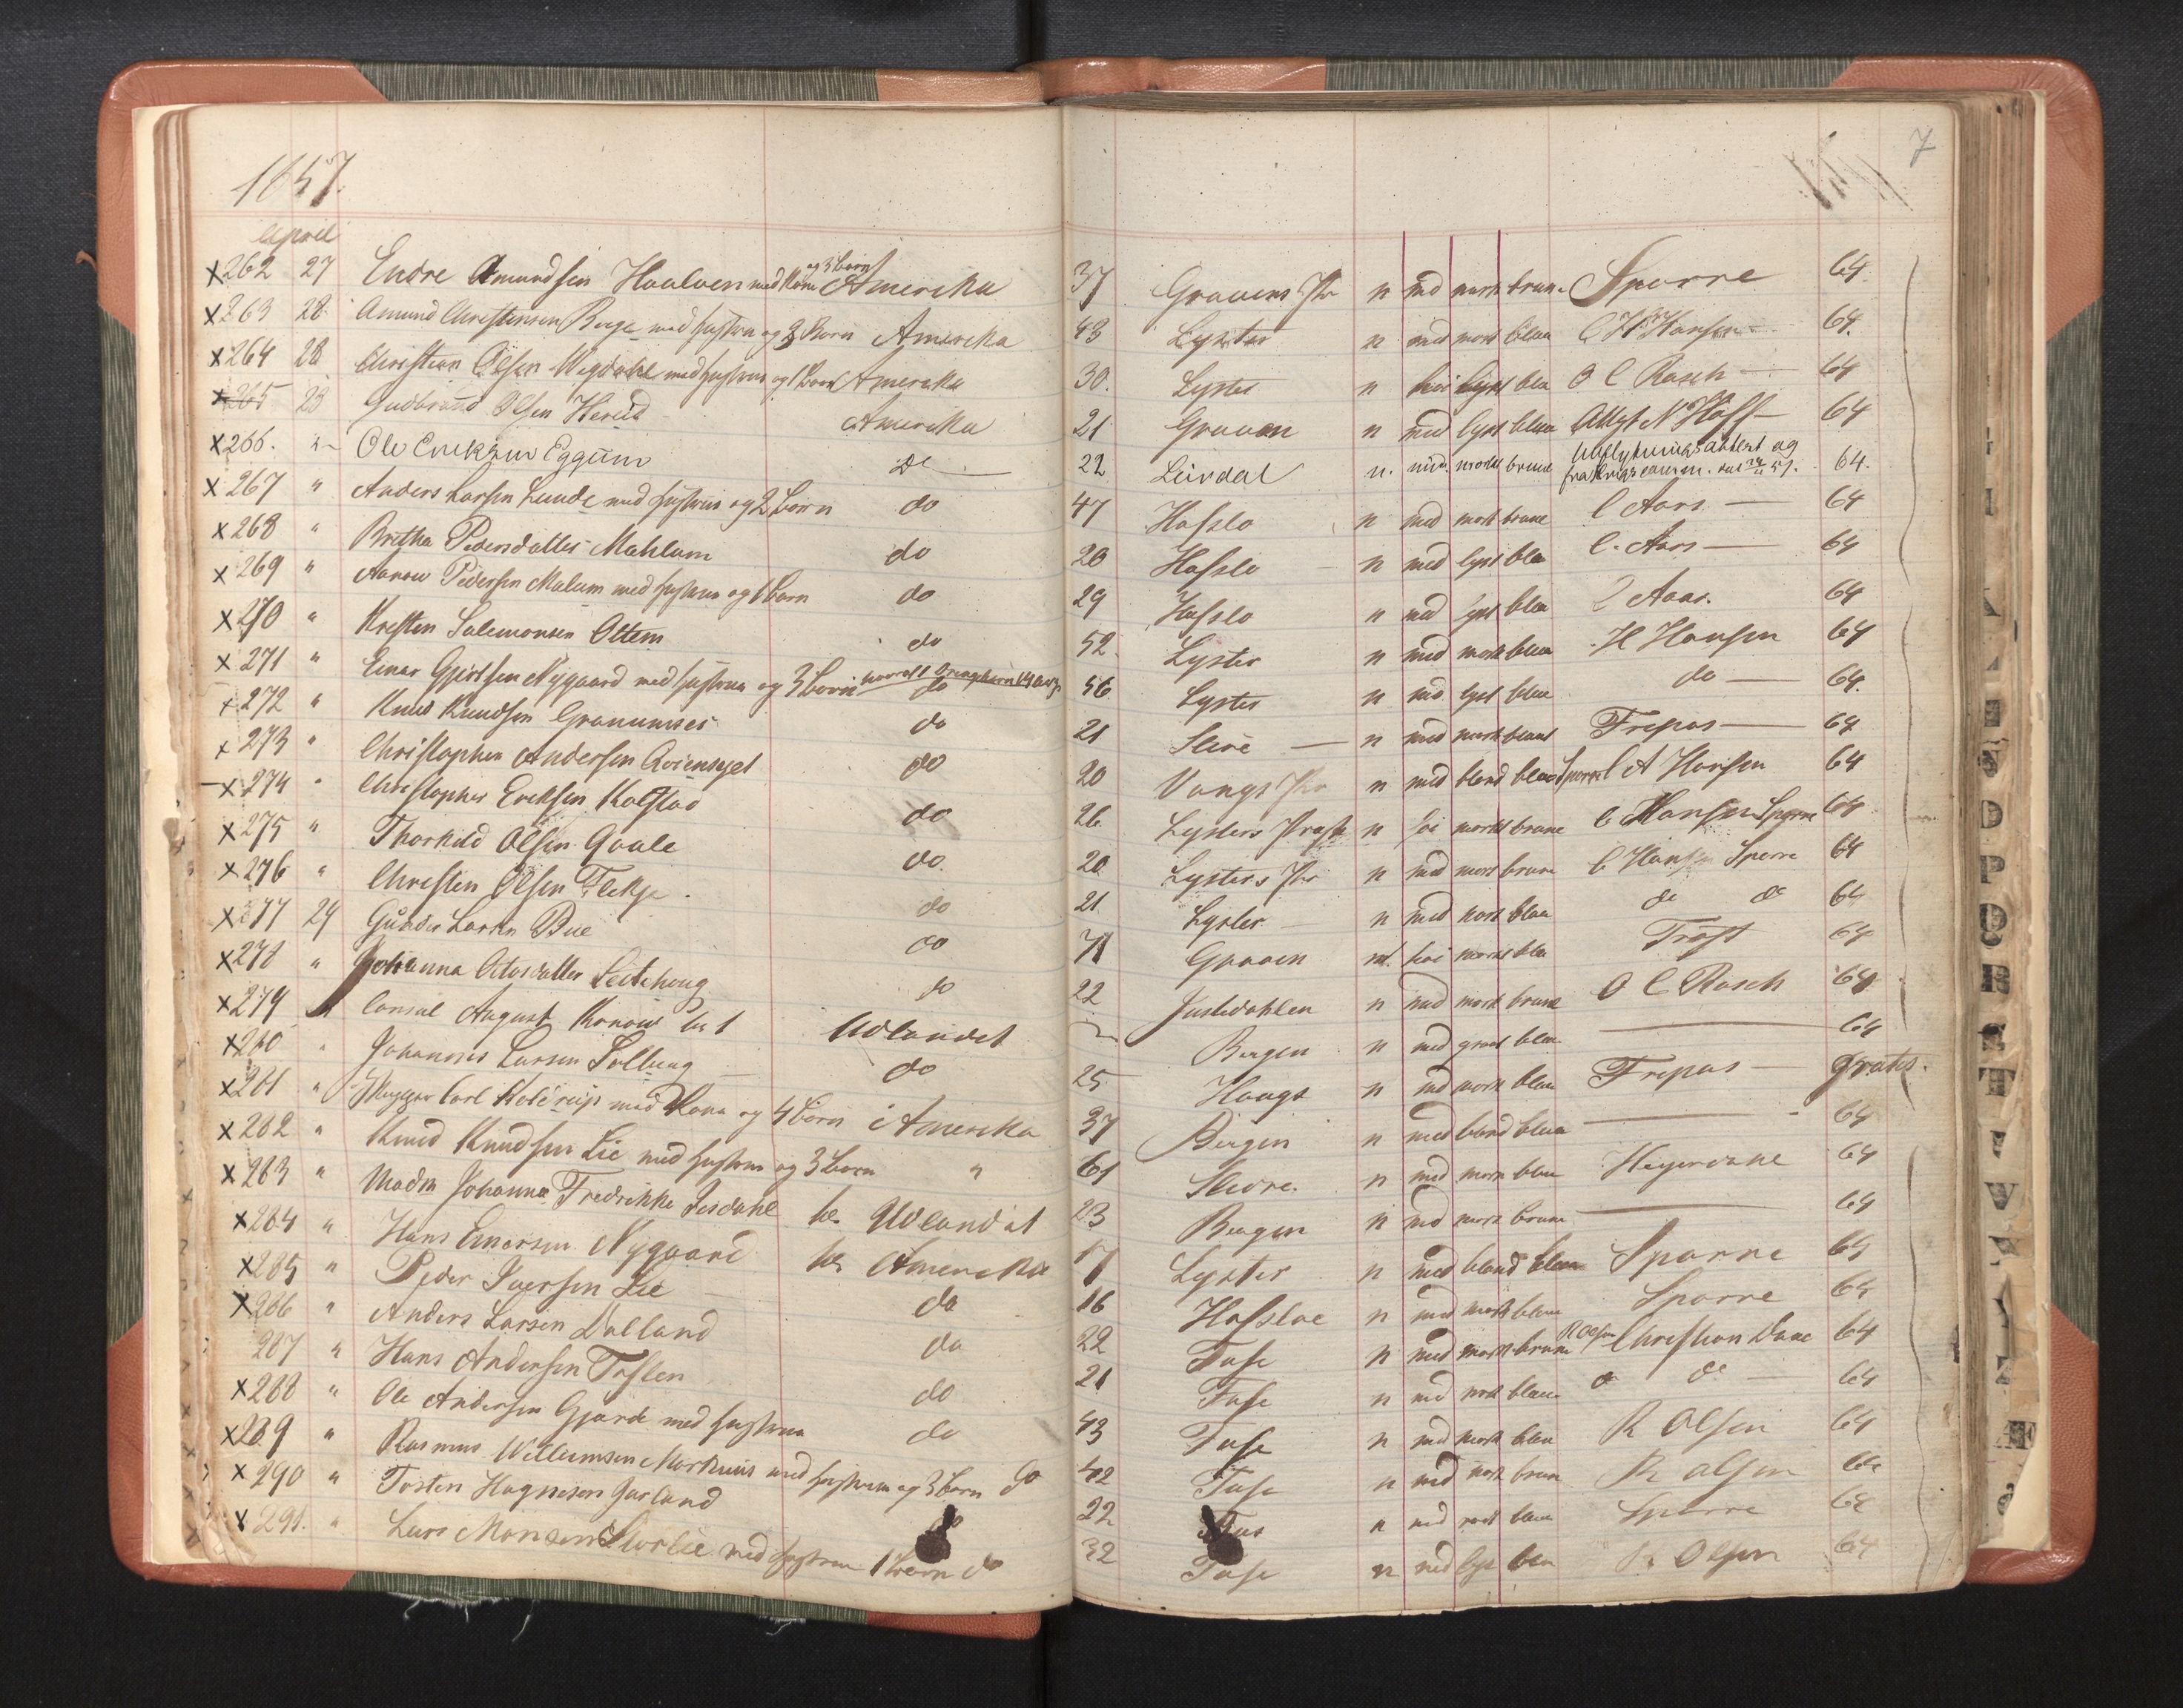 1857.
7
April
x262 27 Endre Amundsen Haalven med Kone og 3 börn Amerika 37 Gravens Pr n med mork brune Sparre 64
x263 28 Amund Christensen Berge med hustru og 3 Börn Amerika 43 Lyster n med mork blaa C H Hansen 64
x264 28 Christian Olsen Vigdahl med hustru og 1 barn Amerika 30. Lyster n höi lyst blaa O C Rasch 64
x265 28 Gudbrand Olsen Herud Amerika 21 Graven n med lyst blaa N Hoff 64
x266. Ole Eriksen Eggum do 22 Leirdal n. mid. mork brune Udflytningsattest og fra 64.
x267 " Anders Larsen Lunde med hustru og 2 børn do 47 Hafslo n med mork brune C Aars 64
x268 " Britha Pedersdatter Mahlum do 20 Hafslo n med lyst blaa C. Aars 64
x269 " Pedersen Malum med hustru og 1 Barn do 29 Hafslo n med lyst blaa C Aars. 64
x270 " Kristen Salemonsen Ottem do 52 Lyster n med mork blaa H Hansen 64
x271 " Einar Gjertsen Nygaard med hustru og 3 Børn do 56 Lyster n med lyst blaa do 64.
x272 " Knud Knudsen do 21 Slire n med mork blaae Frepas 64
x273 " Christopher Andersen do 20 Vangs Pr n med bland blaa Sparre C A Hansen 64
x274 " Christopher Eriksen Kalstad do 26 Lysters Præst n höi mork brune C Hansen Sparre 64
x275 " Thorkild Olsen Qvale do. 20 Lysters Pr n med mork brune C Hansen Sparre 64
x276 " Christen Olsen Flekje. do 21 Lyster n med mork blaa do do 64
x277 29 Gunder Larsen Bue do 71 Graven n höi mork blaa Trost 64
x278 " Johanna Ottosdatter Leitehoug do 22 Justedahlen n med mork brune O C Rasch 64
x279 Consul August Konow Udlandet Bergen n med graae blaa 64
x280 " Johannes Larsen Solberg do 25 Hougs n med mork blaa Frepas gratis.
x281 " Skipper Carl med Kone og 4 børn i Amerika 37 Bergen n med bland blaa 64
x282 " Knud Knudsen Lie med hustru og 3 børn " 61 Slidre. n med mork blaa Heyerdahl 64
x283 " Madm Johanna Fredrikke til Udlandet 23 Bergen n med mork brune 64
x284 " Hans Einarsen Nygaard til Amerika 17 Lyster n med bland blaa Sparre 64
x285 " Peder Iversen Lie do 16 Hafsloe n med mork blaa Sparre 64
x286 " Anders Larsen Dalland do 22 Fuse n med mork brune R Olsen Christian Dane 64
287 " Hans Andersen do 21 Fuse n med mork blaa do 64
x288 " Ole Andersen Gjerde med hustru do 43 Fuse n med mork blaa R Olsen 64
x289 " Rasmus Willumsen med hustru og 3 børn do 42 Fuse n med mork brune R Olsen 64
x290 " Torsten Hagnesen Garland do 22 Fus n med mork blaa Sparre 64
x291. " Lars Monsen med hustru 1 barn do 32 Fuse n med lys blaa R Olsen 64